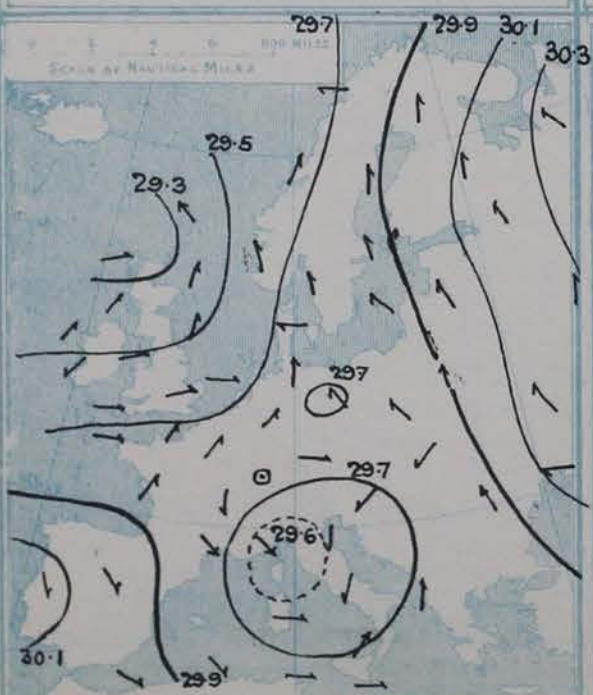 0 2 4 6 800 MILES
SCALE OF NAUTICAL MILES
29.7
29.9
30.1
30.3
29.5
29.3
297
29.7
29.6
30.1
29.9